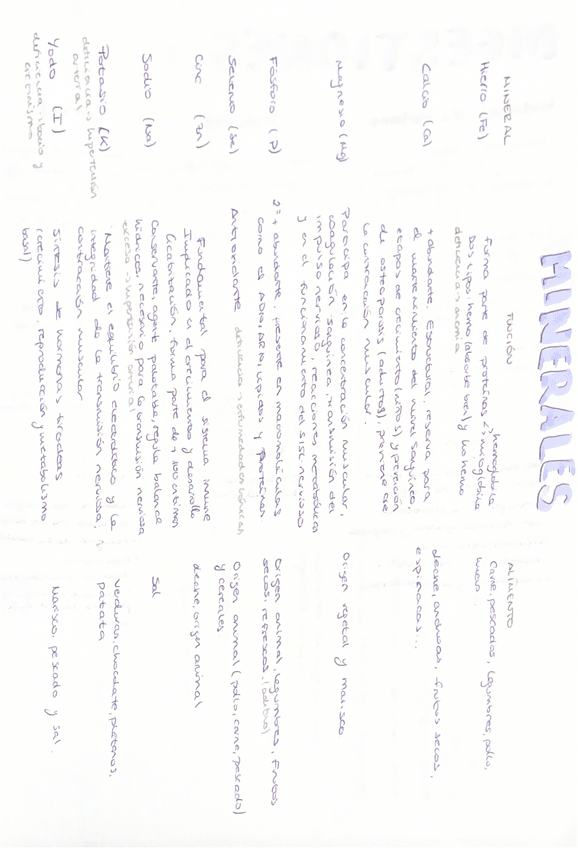 MINERALES
MINERAL FUNCIÓN ALIMENTO
Hierro (Fe)
forma parte de proteínas < hemoglobina
mioglobina
Dos tipos: hemo (absorbe bien) y no hemo
deficiencia → anemia
Carne, pescados, legumbres, pollo,
huevo...
Calcio (Ca)
+ abundante. Estructural, reserva para
el mantenimiento del nivel sanguíneo
etapas de crecimiento (niños) y
de osteoporosis (adultos), previene de
la contracción muscular.
leche, anchoas, frutos secos,
espinacas...
Magnesio (Mg)
Participa en la concentración muscular,
coagulación sanguínea, transmisión del
impulso nervioso, reacciones metabólicas
y en el funcionamiento del sist nervioso
Origen vegetal y marisco
Fósforo (P)
2º + abundante. presente en macromoléculas
como el ADN, ARN, lípidos y proteínas
Origen animal, legumbres, frutos
secos, refrescos (aditivo)
Selenio (Se)
Antioxidante deficiencia → enfermedad
Origen animal (pollo, carne, pescado)
y cereales
Cinc (Zn)
Fundamental para el sistema inmune
Implicado en el crecimiento y desarrollo
cicatrización, forma parte de + 100 enzimas
leche, origen animal
Sodio (Na)
Conservante, agent palatable, regula balance
hídrico, necesario para la transmisión nerviosa
exceso → hipertensión arterial
Sal
Potasio (K)
deficiencia → hipertensión
arterial
Mantiene el equilibrio electrolítico y la
integridad de la transmisión nerviosa,
contracción muscular
verduras, chocolate, plátanos,
patata
Yodo (I)
deficiencia → bocio y
cretinismo
Síntesis de hormonas tiroideas
(crecimiento, reproducción y metabolismo
basal)
Marisco, pescado y sal.